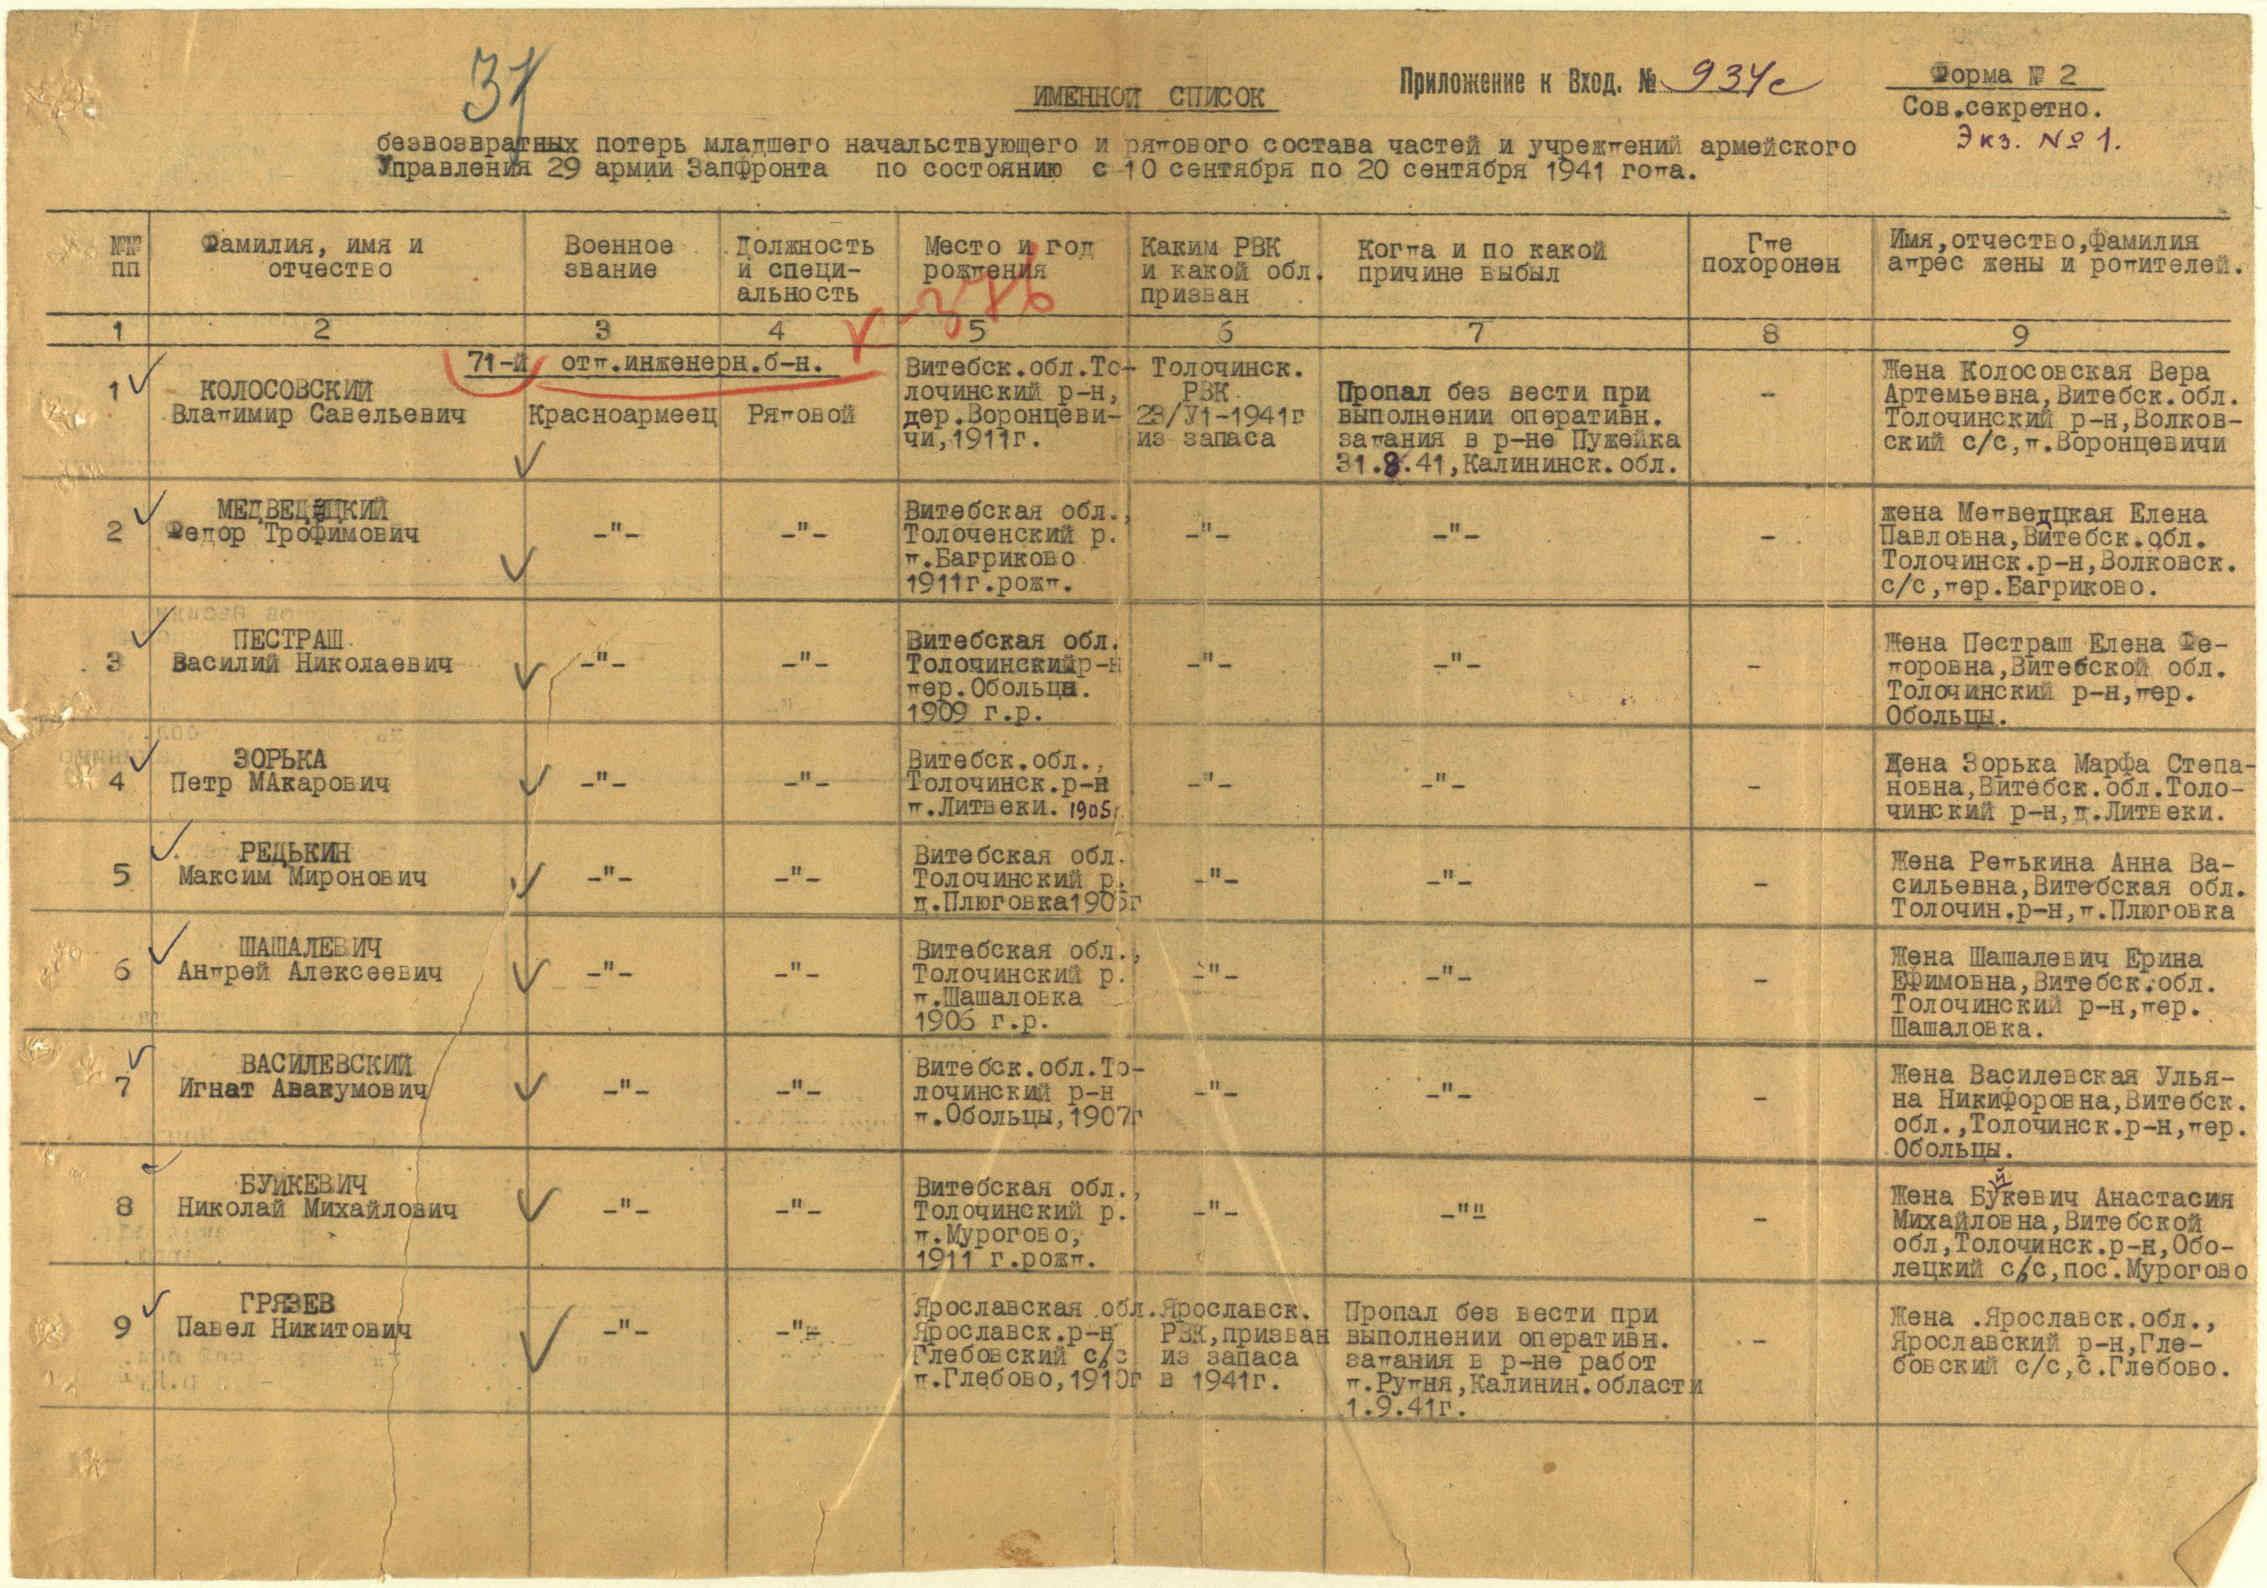 31
ИМЕННОЙ СПИСОК
Приложение к Вход. № 934с
Форма № 2
Сов.секретно.
Экз. № 1.
безвозвратных потерь младшего начальствующего и рядового состава частей и учреждений армейского
Управления 29 армии Запфронта по состоянию с 10 сентября по 20 сентября 1941 года.
№№
пп
Фамилия, имя и
отчество
Военное
звание
Должность
и специ-
альность
Место и год
рождения
Каким РВК
и какой обл.
призван
Когда и по какой
причине выбыл
Где
похоронен
Имя,отчество,фамилия
адрес жены и родителей.
1 2 3 4 5 6 7 8 9
71-й отд.инженерн.б-н.
1
КОЛОСОВСКИЙ
Владимир Савельевич
Красноармеец
Рядовой
Витебск.обл.То-
лочинский р-н,
дер.Воронцеви-
чи,1911г.
Толочинск.
РВК
23/У1-1941г
из запаса
Пропал без вести при
выполнении оперативн.
задания в р-не Пужейка
31.8.41,Калининск.обл.
-
Жена Колосовская Вера
Артемьевна,Витебск.обл.
Толочинский р-н,Волков-
ский с/с,д.Воронцевичи
2
МЕДВЕДЕЦКИЙ
Федор Трофимович
-"-
-"-
Витебская обл.,
Толоченский р.
д.Багриково
1911г.рожд.
-"-
-"-
-
жена Медведцкая Елена
Павловна,Витебск.обл.
Толочинск.р-н,Волковск.
с/с,дер.Багриково.
3
ПЕСТРАШ
Василий Николаевич
-"-
-"-
Витебская обл.
Толочинскийр-н
дер.Обольцы.
1909 г.р.
-"-
-"-
-
Жена Пестраш Елена Фе-
доровна,Витебской обл.
Толочинский р-н,дер.
Обольцы.
4
ЗОРЬКА
Петр МАкарович
-"-
-"-
Витебск.обл.,
Толочинск.р-н
д.Литвеки. 1905г
-"-
-"-
-
Жена Зорька Марфа Степа-
новна,Витебск.обл.Толо-
чинский р-н,д.Литвеки.
5
РЕДЬКИН
Максим Миронович
-"-
-"-
Витебская обл.
Толочинский р.
д.Плюговка1905г
-"-
-"-
-
Жена Редькина Анна Ва-
сильевна,Витебская обл.
Толочин.р-н,д.Плюговка
6
ШАШАЛЕВИЧ
Андрей Алексеевич
-"-
-"-
Витебская обл.,
Толочинский р.
д.Шашаловка
1906 г.р.
-"-
-"-
-
Жена Шашалевич Ерина
Ефимовна,Витебск.обл.
Толочинский р-н,дер.
Шашаловка.
7
ВАСИЛЕВСКИЙ
Игнат Авакумович
-"-
-"-
Витебск.обл.То-
лочинский р-н
д.Обольцы,1907г
-"-
-"-
-
Жена Василевская Улья-
на Никифоровна,Витебск.
обл.,Толочинск.р-н,дер.
Обольцы.
8
БУЙКЕВИЧ
Николай Михайлович
-"-
-"-
Витебская обл.,
Толочинский р.
д.Мурогово,
1911 г.рожд.
-"-
-""
-
Жена Буйкевич Анастасия
Михайловна,Витебской
обл,Толочинск.р-н,Обо-
лецкий с/с,пос.Мурогово
9
ГРЯЗЕВ
Павел Никитович
-"-
-"-
Ярославская обл.
Ярославск.р-н
Глебовский с/с
д.Глебово,1910г
Ярославск.
РВК,призван
из запаса
в 1941г.
Пропал без вести при
выполнении оперативн.
задания в р-не работ
д.Рудня,Калинин.области
1.9.41г.
-
Жена .Ярославск.обл.,
Ярославский р-н,Гле-
бовский с/с,с.Глебово.